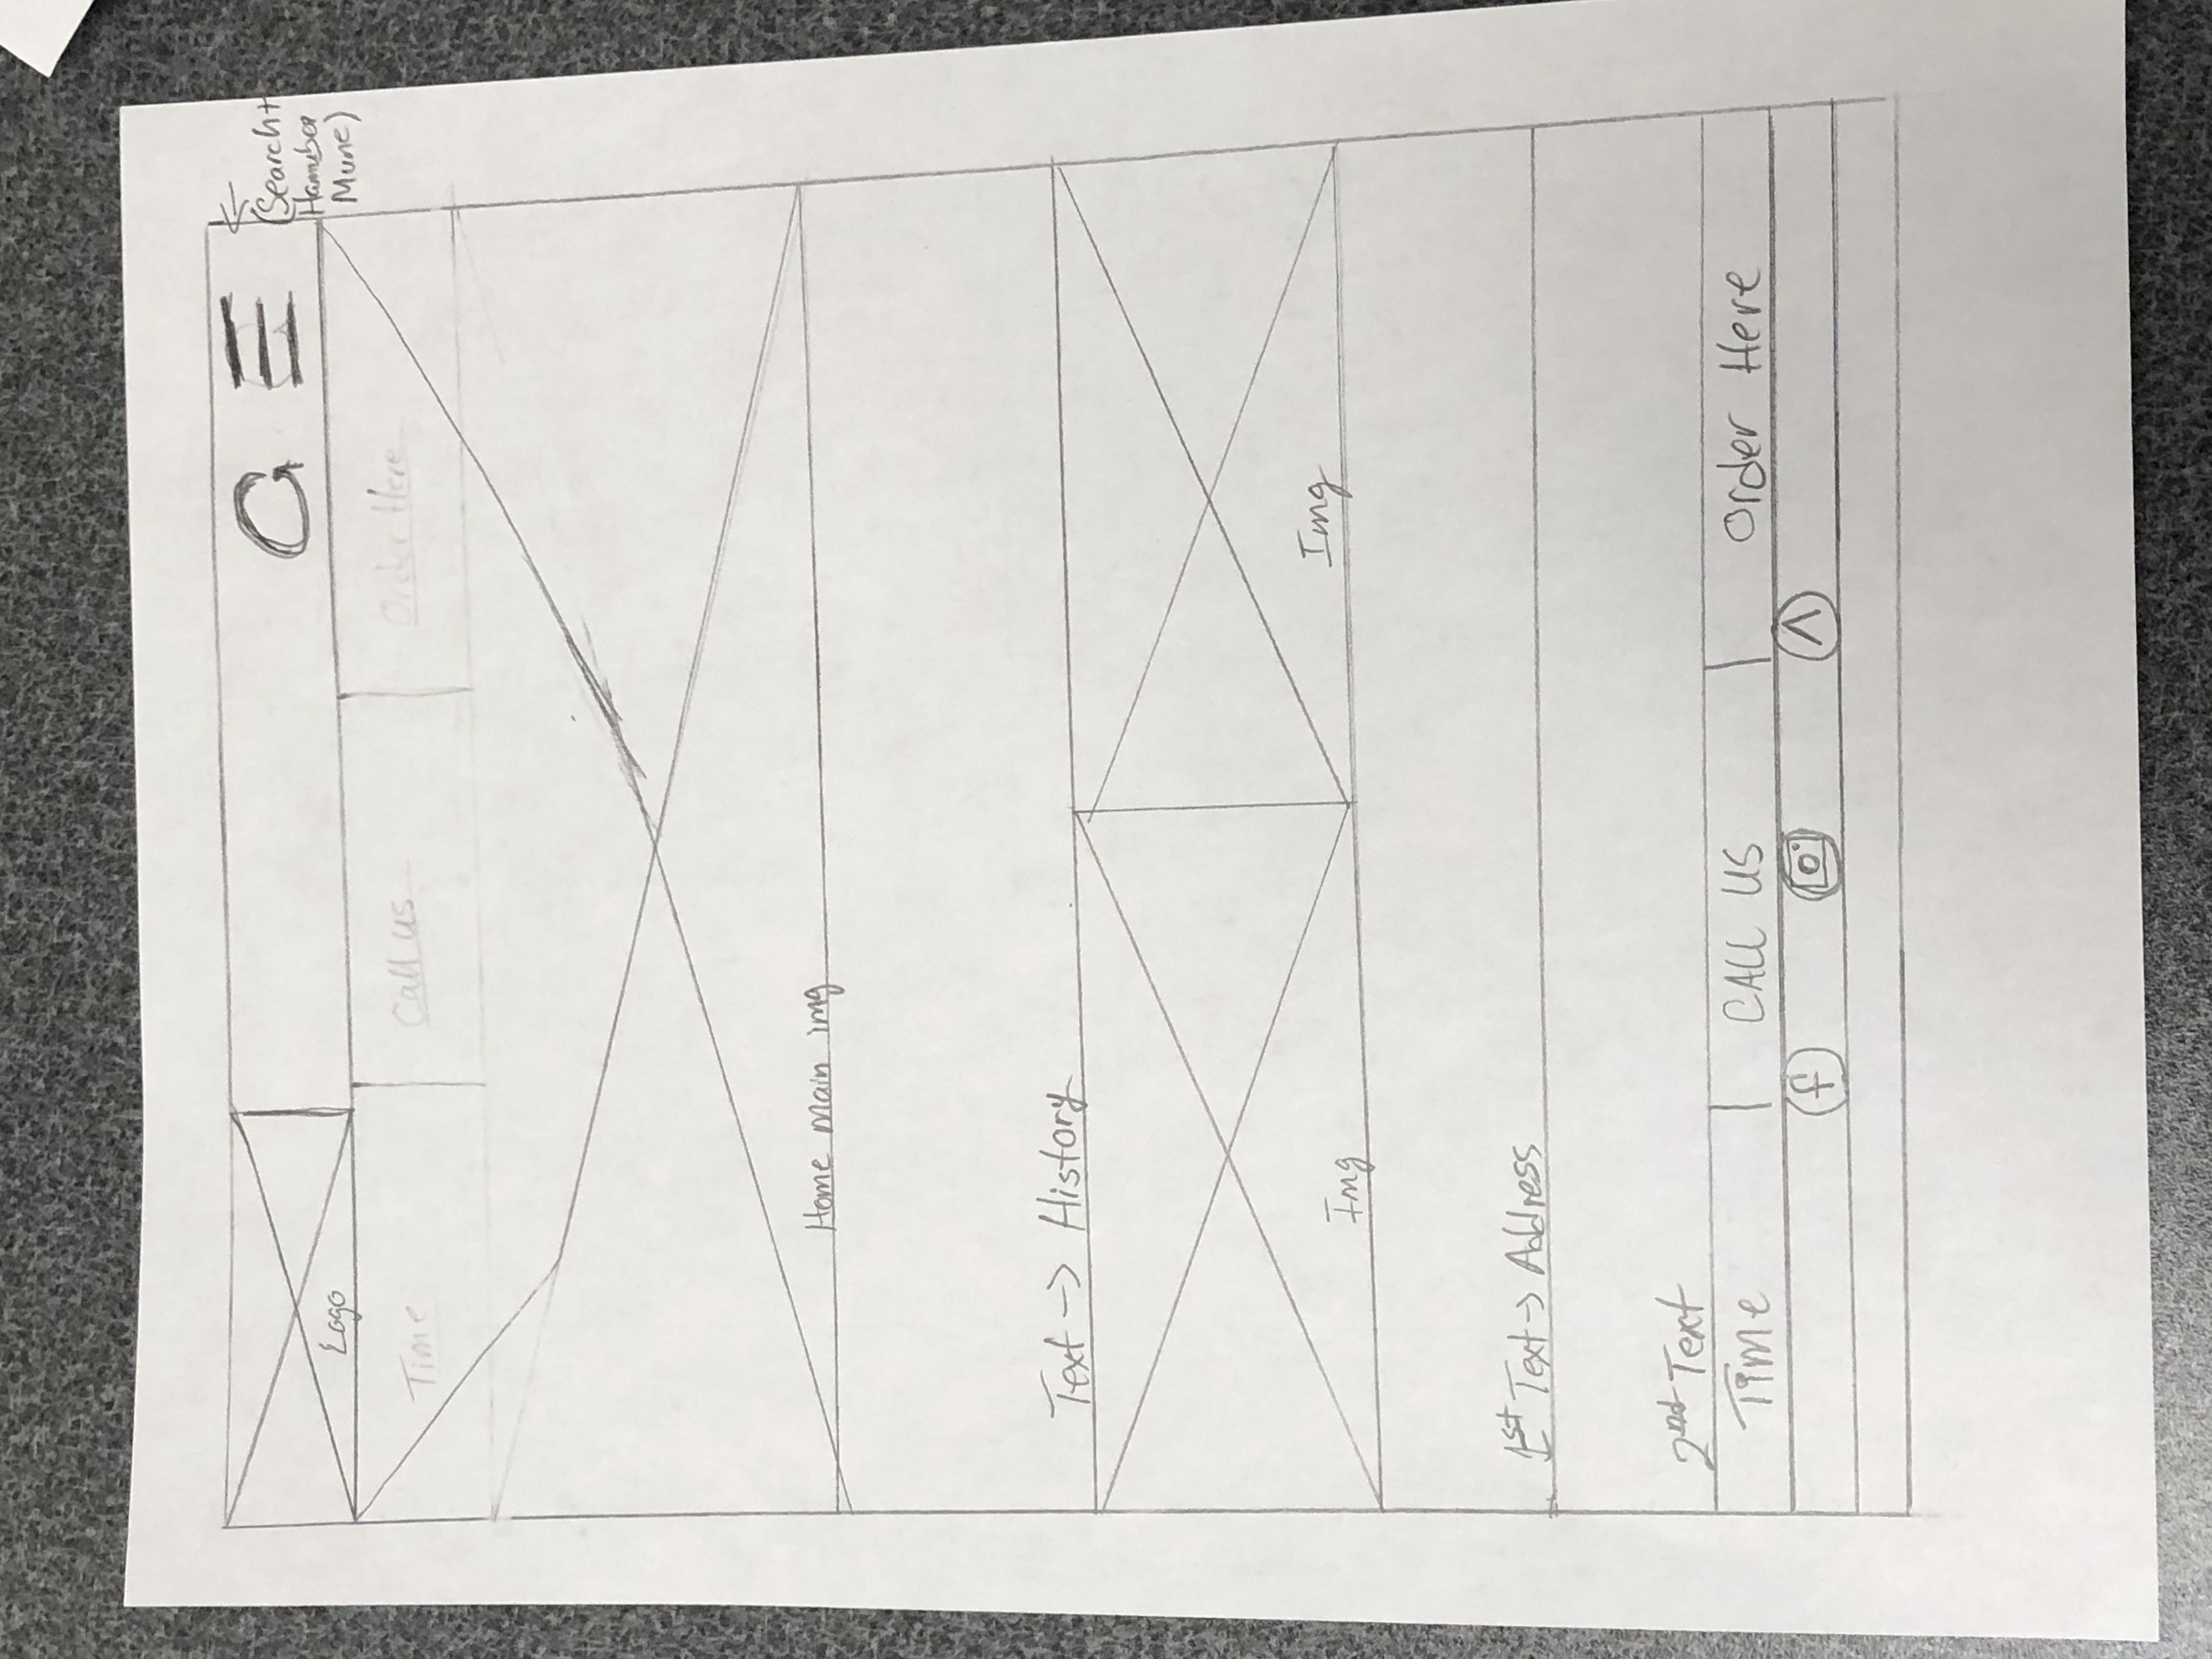 Logo
(Search+
Hamuber
Mune)
Time
Call us
Order Here
Home main img
Text -> History
Img
Img
1st Text -> Address
2nd Text
Time
CALL US
Order Here
f